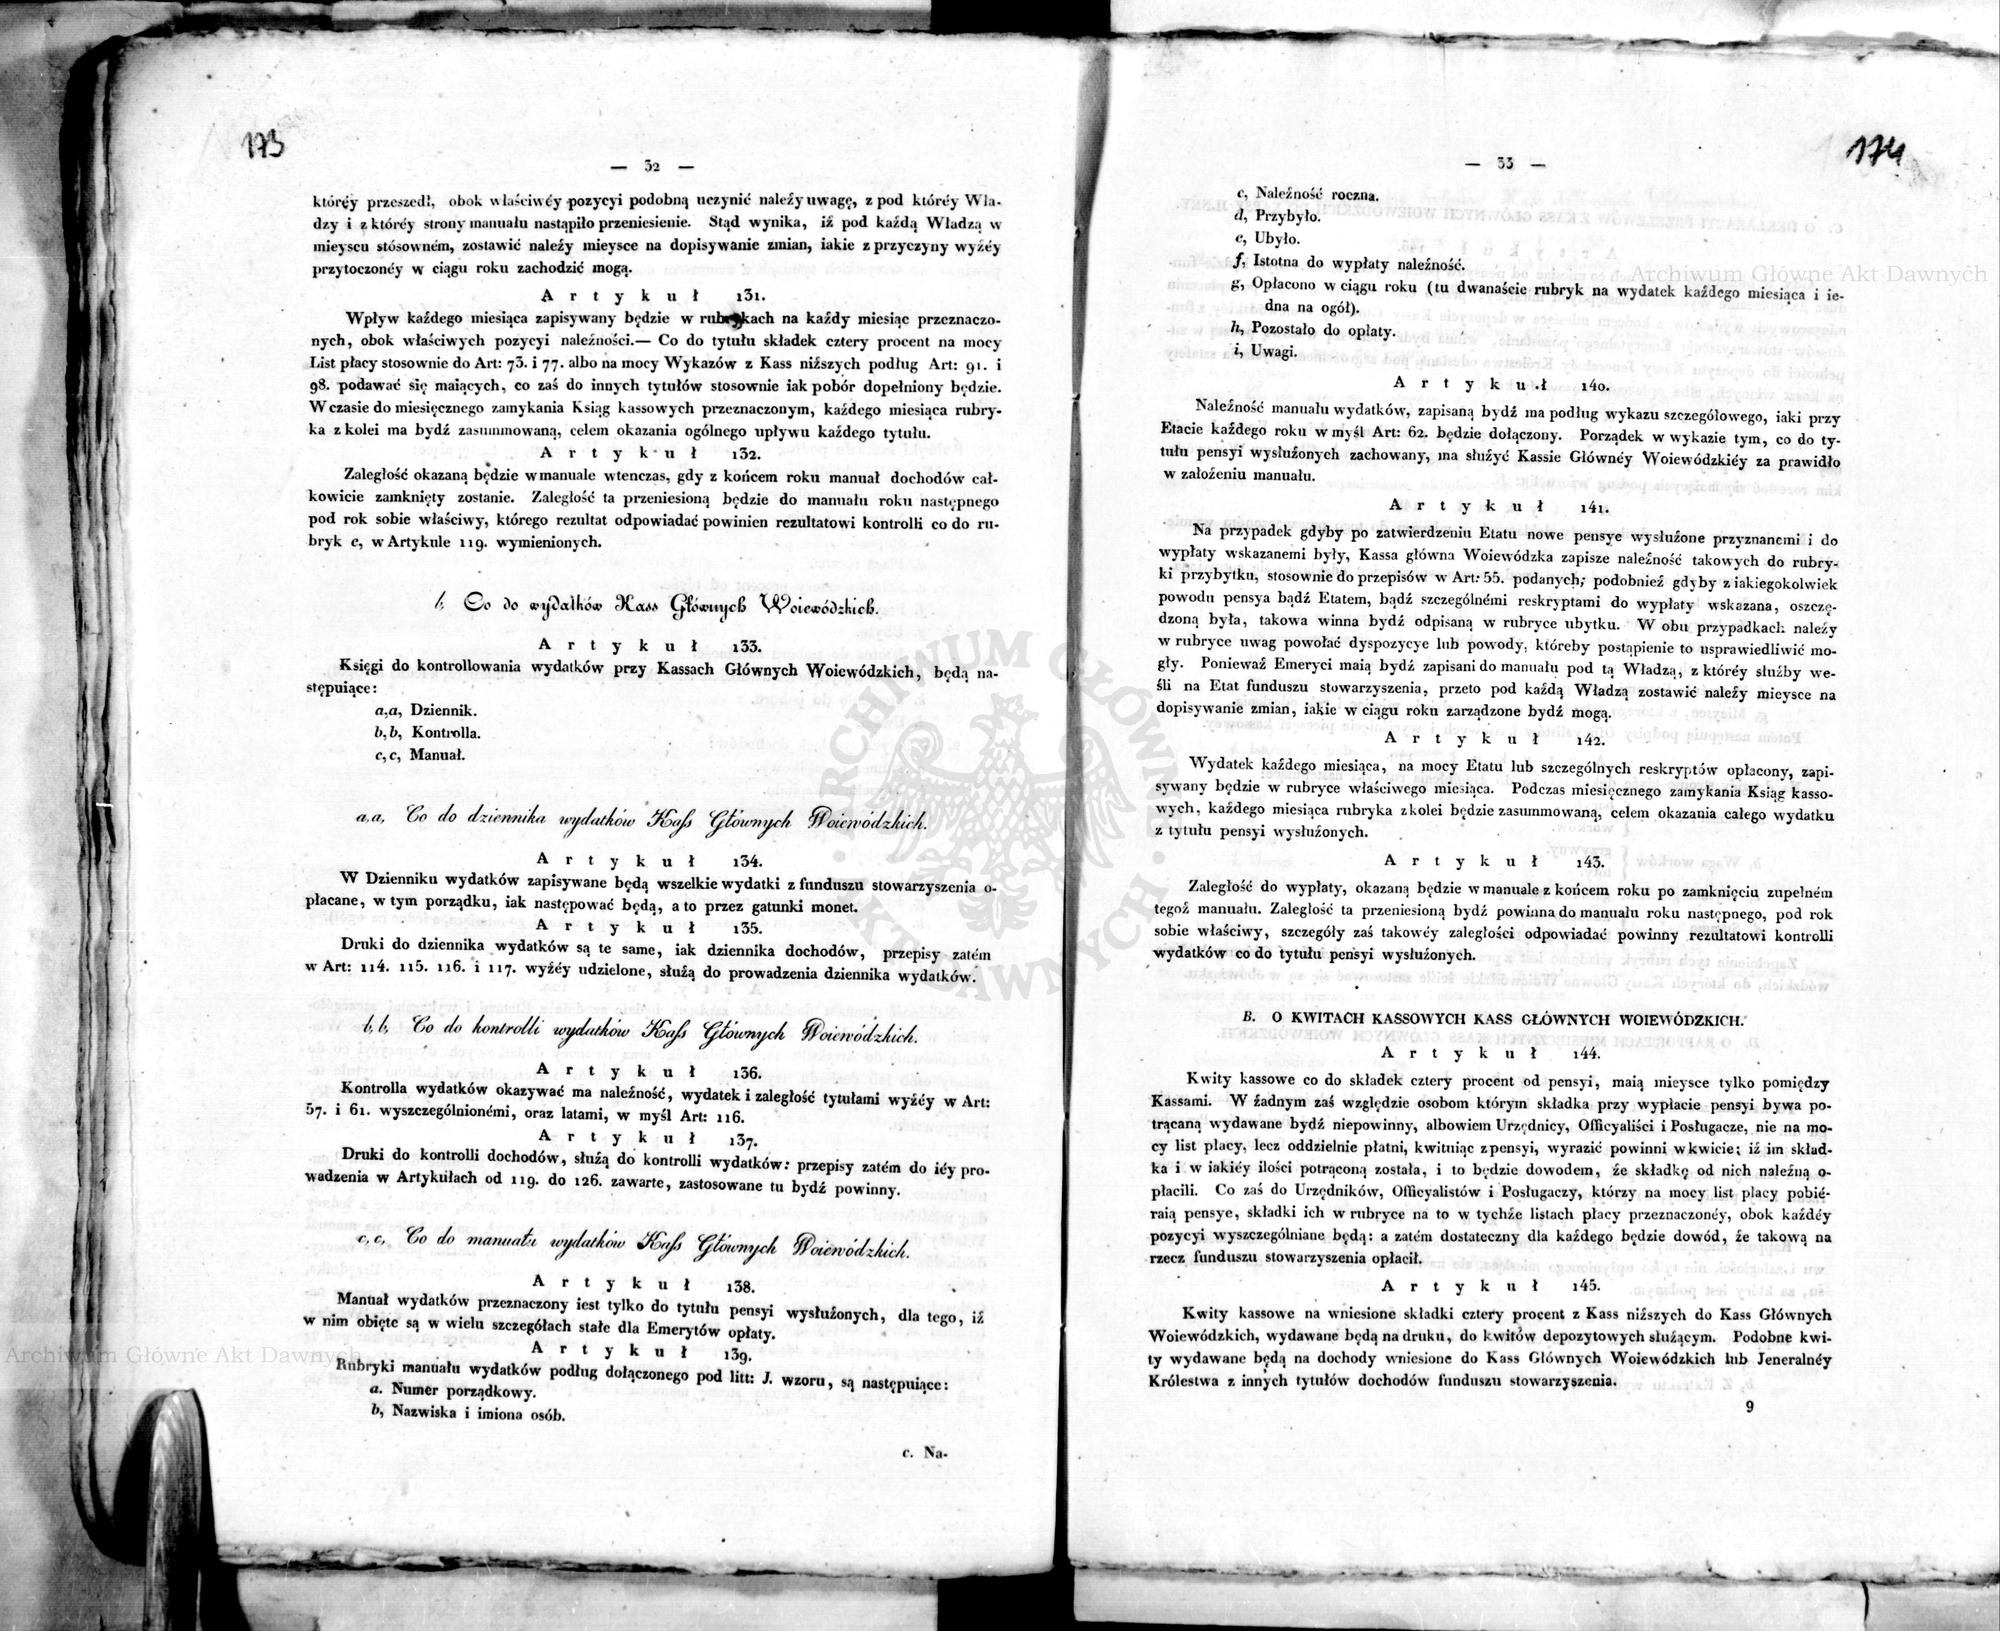 173
— 32 —
któréy przeszedł, obok właściwéy pozycyi podobną uczynić należy uwagę, z pod któréy Wła-
dzy i z któréy strony manuału nastąpiło przeniesienie. Stąd wynika, iż pod każdą Władzą w
mieyscu stósowném, zostawić należy mieysce na dopisywanie zmian, iakie z przyczyny wyżéy
przytoczonéy w ciągu roku zachodzić mogą.
Artykuł 131.
Wpływ każdego miesiąca zapisywany będzie w rubrykach na każdy miesiąc przeznaczo-
nych, obok właściwych pozycyi należności.— Co do tytułu składek cztery procent na mocy
List płacy stosownie do Art: 73. i 77. albo na mocy Wykazów z Kass niższych podług Art: 91. i
98. podawać się maiących, co zaś do innych tytułów stosownie iak pobór dopełniony będzie.
W czasie do miesięcznego zamykania Ksiąg kassowych przeznaczonym, każdego miesiąca rubry-
ka z kolei ma bydź zasummowaną, celem okazania ogólnego upływu każdego tytułu.
Artykuł 132.
Zaległość okazaną będzie w manuale wtenczas, gdy z końcem roku manuał dochodów cał-
kowicie zamknięty zostanie. Zaległość ta przeniesioną będzie do manuału roku następnego
pod rok sobie właściwy, którego rezultat odpowiadać powinien rezultatowi kontrolli co do ru-
bryk e, w Artykule 119. wymienionych.
b, Co do wydatków Kass Głównych Woiewódzkich.
Artykuł 133.
Księgi do kontrollowania wydatków przy Kassach Głównych Woiewódzkich, będą na-
stępuiące:
a,a, Dziennik.
b,b, Kontrolla.
c,c, Manuał.
a,a, Co do dziennika wydatków Kass Głównych Woiewódzkich.
Artykuł 134.
W Dzienniku wydatków zapisywane będą wszelkie wydatki z funduszu stowarzyszenia o-
płacane, w tym porządku, iak następować będą, a to przez gatunki monet.
Artykuł 135.
Druki do dziennika wydatków są te same, iak dziennika dochodów, przepisy zatém
w Art: 114. 115. 116. i 117. wyżéy udzielone, służą do prowadzenia dziennika wydatków.
b,b, Co do kontrolli wydatków Kass Głównych Woiewódzkich.
Artykuł 136.
Kontrolla wydatków okazywać ma należność, wydatek i zaległość tytułami wyżéy w Art:
57. i 61. wyszczególnionémi, oraz latami, w myśl Art: 116.
Artykuł 137.
Druki do kontrolli dochodów, służą do kontrolli wydatków: przepisy zatém do iéy pro-
wadzenia w Artykułach od 119. do 126. zawarte, zastosowane tu bydź powinny.
c,c, Co do manuału wydatków Kass Głównych Woiewódzkich.
Artykuł 138.
Manuał wydatków przeznaczony iest tylko do tytułu pensyi wysłużonych, dla tego, iż
w nim obięte są w wielu szczegółach stałe dla Emerytów opłaty.
Artykuł 139.
Rubryki manuału wydatków podług dołączonego pod litt: J. wzoru, są następuiące:
a. Numer porządkowy.
b, Nazwiska i imiona osób.
c. Na-
174
— 33 —
c, Należność roczna.
d, Przybyło.
e, Ubyło.
f, Istotna do wypłaty należność.
g, Opłacono w ciągu roku (tu dwanaście rubryk na wydatek każdego miesiąca i ie-
dna na ogół).
h, Pozostało do opłaty.
i, Uwagi.
Artykuł 140.
Należność manuału wydatków, zapisaną bydź ma podług wykazu szczegółowego, iaki przy
Etacie każdego roku w myśl Art: 62. będzie dołączony. Porządek w wykazie tym, co do ty-
tułu pensyi wysłużonych zachowany, ma służyć Kassie Głównéy Woiewódzkiéy za prawidło
w założeniu manuału.
Artykuł 141.
Na przypadek gdyby po zatwierdzeniu Etatu nowe pensye wysłużone przyznanemi i do
wypłaty wskazanemi były, Kassa główna Woiewódzka zapisze należność takowych do rubry-
ki przybytku, stosownie do przepisów w Art: 55. podanych; podobnież gdyby z iakiegokolwiek
powodu pensya bądź Etatem, bądź szczególnémi reskryptami do wypłaty wskazana, oszczę-
dzoną była, takowa winna bydź odpisaną w rubryce ubytku. W obu przypadkach należy
w rubryce uwag powołać dyspozycye lub powody, któreby postąpienie to usprawiedliwić mo-
gły. Ponieważ Emeryci maią bydź zapisani do manuału pod tą Władzą, z któréy służby we-
śli na Etat funduszu stowarzyszenia, przeto pod każdą Władzą zostawić należy mieysce na
dopisywanie zmian, iakie w ciągu roku zarządzone bydź mogą.
Artykuł 142.
Wydatek każdego miesiąca, na mocy Etatu lub szczególnych reskryptów opłacony, zapi-
sywany będzie w rubryce właściwego miesiąca. Podczas miesięcznego zamykania Ksiąg kasso-
wych, każdego miesiąca rubryka z kolei będzie zasummowaną, celem okazania całego wydatku
z tytułu pensyi wysłużonych.
Artykuł 143.
Zaległość do wypłaty, okazaną będzie w manuale z końcem roku po zamknięciu zupełném
tegoż manuału. Zaległość ta przeniesioną bydź powinna do manuału roku następnego, pod rok
sobie właściwy, szczegóły zaś takowéy zaległości odpowiadać powinny rezultatowi kontrolli
wydatków co do tytułu pensyi wysłużonych.
B. O KWITACH KASSOWYCH KASS GŁÓWNYCH WOIEWÓDZKICH.
Artykuł 144.
Kwity kassowe co do składek cztery procent od pensyi, maią mieysce tylko pomiędzy
Kassami. W żadnym zaś względzie osobom którym składka przy wypłacie pensyi bywa po-
trącaną wydawane bydź niepowinny, albowiem Urzędnicy, Officyaliści i Posługacze, nie na mo-
cy list płacy, lecz oddzielnie płatni, kwituiąc z pensyi, wyrazić powinni w kwicie; iż im skład-
ka i w iakiéy ilości potrąconą została, i to będzie dowodem, że składkę od nich należną o-
płacili. Co zaś do Urzędników, Officyalistów i Posługaczy, którzy na mocy list płacy pobié-
raią pensye, składki ich w rubryce na to w tychże listach płacy przeznaczonéy, obok każdéy
pozycyi wyszczególniane będą: a zatém dostateczny dla każdego będzie dowód, że takową na
rzecz funduszu stowarzyszenia opłacił.
Artykuł 145.
Kwity kassowe na wniesione składki cztery procent z Kass niższych do Kass Głównych
Woiewódzkich, wydawane będą na druku, do kwitów depozytowych służącym. Podobne kwi-
ty wydawane będą na dochody wniesione do Kass Głównych Woiewódzkich lub Jeneralnéy
Królestwa z innych tytułów dochodów funduszu stowarzyszenia.
9
Archiwum Główne Akt Dawnych
Archiwum Główne Akt Dawnych
ARCHIWUM GŁÓWNE AKT DAWNYCH